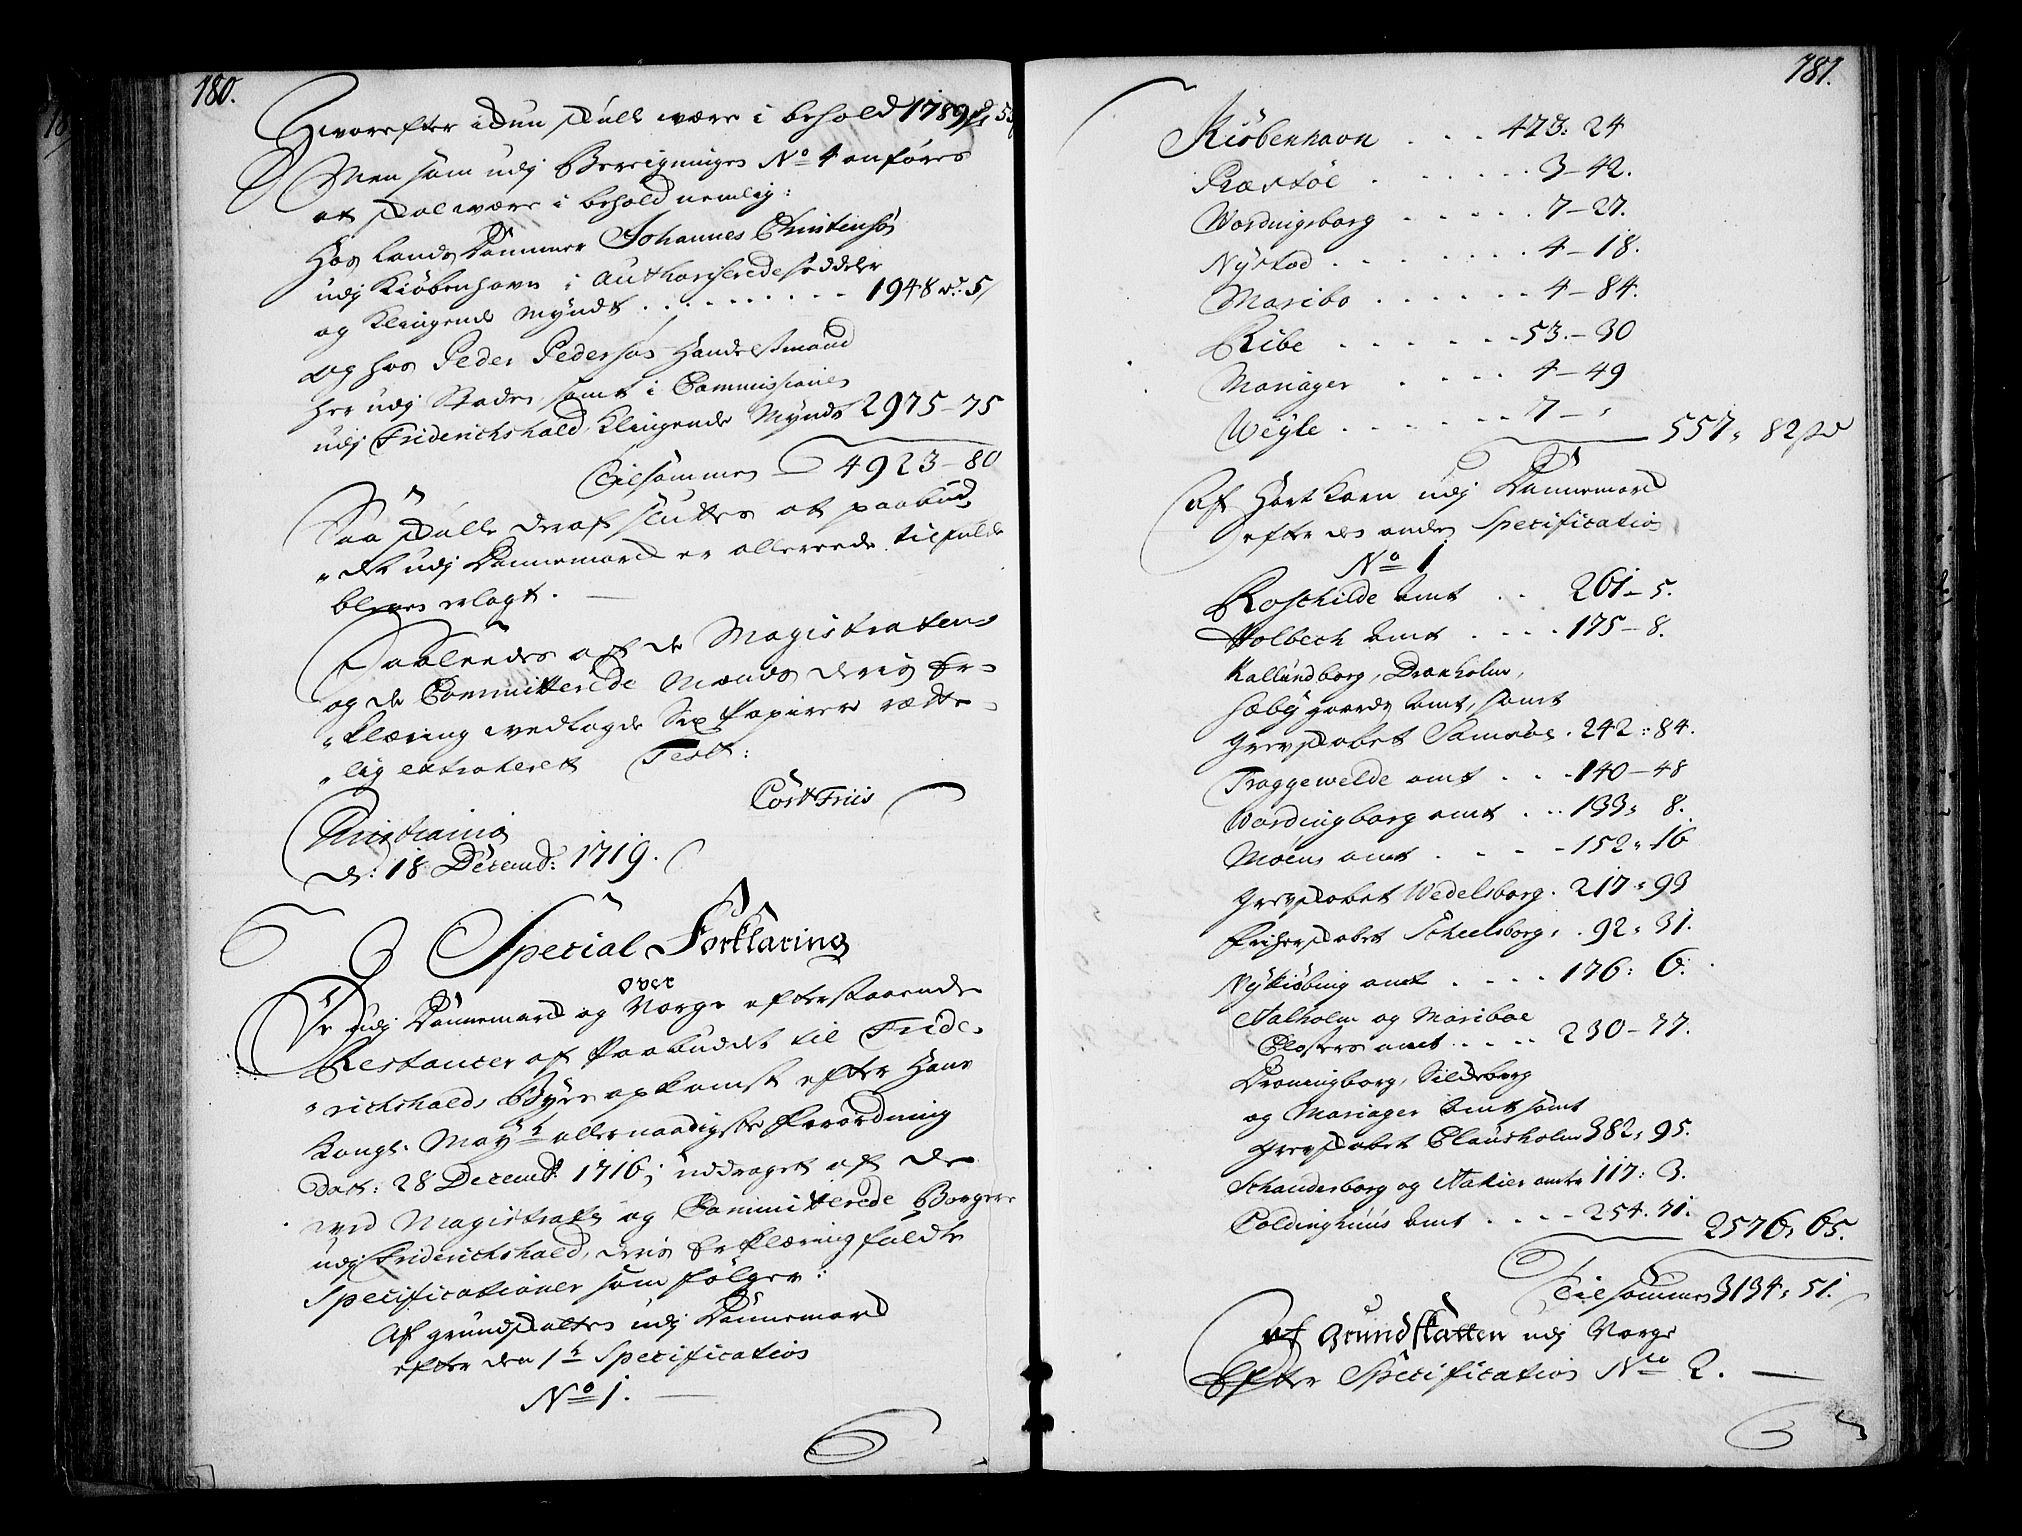 180.
Hvorefter idun skulle være i behold 1789
Men som udj Bereigningen No 4 anföres
at skal være i behold nemlig:
Hos Lands Dommer Johannes Christensøn
udj Kiöbenhavn i authoriserede sedler
og klingende Myndt . . . . . . . . . . 1948 rd. 5
og hos Peder Pedersøn Handelsmand
her udj Staden samt i Commissionen
udj Friderichshald, klingende Myndt 2975 - 75
Tilsammen 4923 - 80
Saa skulle deraf sluttes at paabud-
"det udj Dannemarck er allereede tilfulde
blevet erlagt. —
Saaleedes af de Magistratens
og de Committerede Mænds deris Er-
"klæring vedlagde Sex Papirer rætte-
"lig extraheret Test:
Cort Friis
Christiania
d: 18 Decemb: 1719.
Special Forklaring
over
De udj Dannemarck og Norge efterstaaende
Restancer af Paabuddet til Fride-
"richshalds Byes opkomst efter Hans
Kongl: Mayts allernaadigste Forordning
Dat: 28 Decemb: 1716, uddraget af de
ved Magistraten og Committerede Borgere
udj Friderichshald, deris Erklæring fuldte
Specificationer som fölger:
Af grundskatten udj Dannemarck
efter den 1te Specification
No 1. —
181.
Kiöbenhavn . . . 473: 24
Præstöe . . . . . . . 3 - 42.
Wordingborg . . . . . 7 - 27.
Nÿsted . . . . . . . . 4 - 18.
Maribo . . . . . . 4 - 84.
Ribe . . . . . . . 53. - 30
Mariager . . . . . 4 - 49
Weyle . . . . . . . 7 - "
557, 82
Af Hartkorn udj Dannemarck
efter den anden Specification
No 1
Roschilde Amt . . 261 - 5.
Holbech Amt . . . . 175 - 8.
Kallundborg, Draxholm,
Sæbygaards Amt, samt
Grevskabet Samsöe . 242 : 84.
Traggewelde amt . . . 140 - 48
Wordingborg amt . . . 133, 8.
Möens amt . . . . 152 " 16
Grevskabet Wedelsborg . 217 " 93
Friherskabet Scheelsborg . . 92 : 31.
Nÿkiöbing amt . . . . 176 : 6.
Aalholm og Mariboe
Closters amt . . . . 230 - 77.
Dronningborg, Sildeborg
og Mariager Amt samt
Grevskabet Clausholm 382, 95.
Schanderborg og Aakier amter 117 : 3.
Coldinghuus Amt . . . . 254. 71.
2576, 65.
Tilsammen 3134, 51.
Af Grundskatten udj Norge
Efter Specification No 2. —